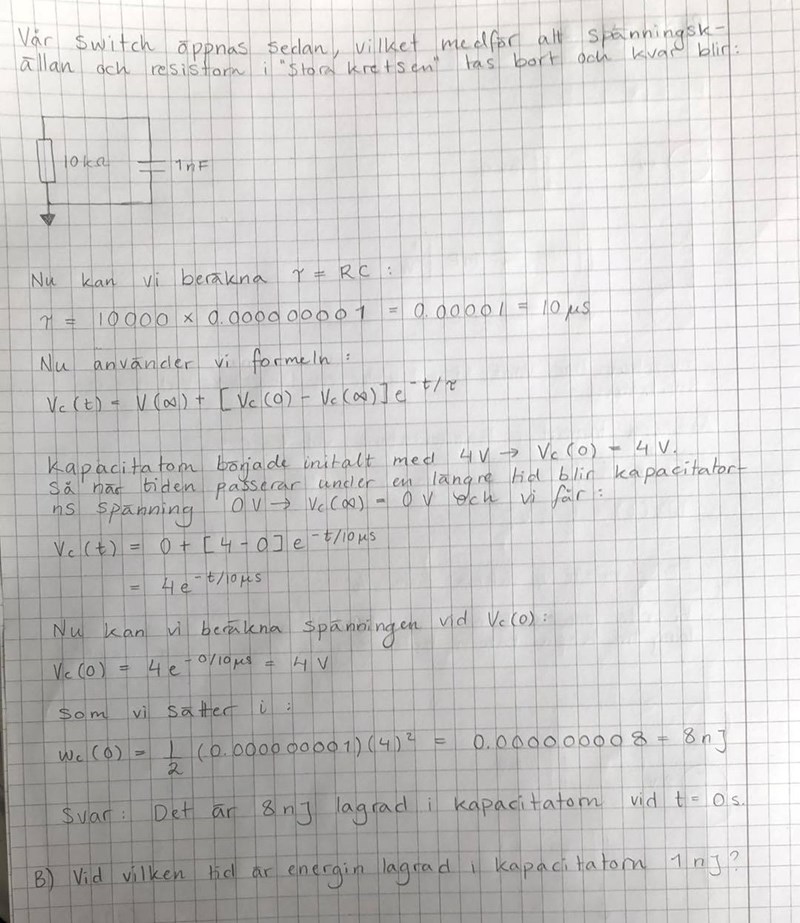 Vår switch öppnas sedan, vilket medför att spänningsk-
ällan och resistorn i "stora kretsen" tas bort och kvar blir:
10kΩ
1nF
Nu kan vi beräkna τ = RC :
τ = 10000 × 0.000000001 = 0.00001 = 10 μs
Nu använder vi formeln :
Vc(t) = V(∞) + [Vc(0) - Vc(∞)] e^-t/τ
Kapacitatorn började initalt med 4V → Vc(0) = 4 V.
Så när tiden passerar under en längre tid blir kapacitator-
ns spänning 0V → Vc(∞) = 0V och vi får :
Vc(t) = 0 + [4-0] e^-t/10μs
= 4e^-t/10μs
Nu kan vi beräkna spänningen vid Vc(0) :
Vc(0) = 4e^-0/10μs = 4 V
Som vi sätter i :
wc(0) = 1/2 (0.000000001)(4)² = 0.000000008 = 8nJ
Svar : Det är 8nJ lagrad i kapacitatorn vid t = 0 s.
B) Vid vilken tid är energin lagrad i kapacitatorn 1nJ?